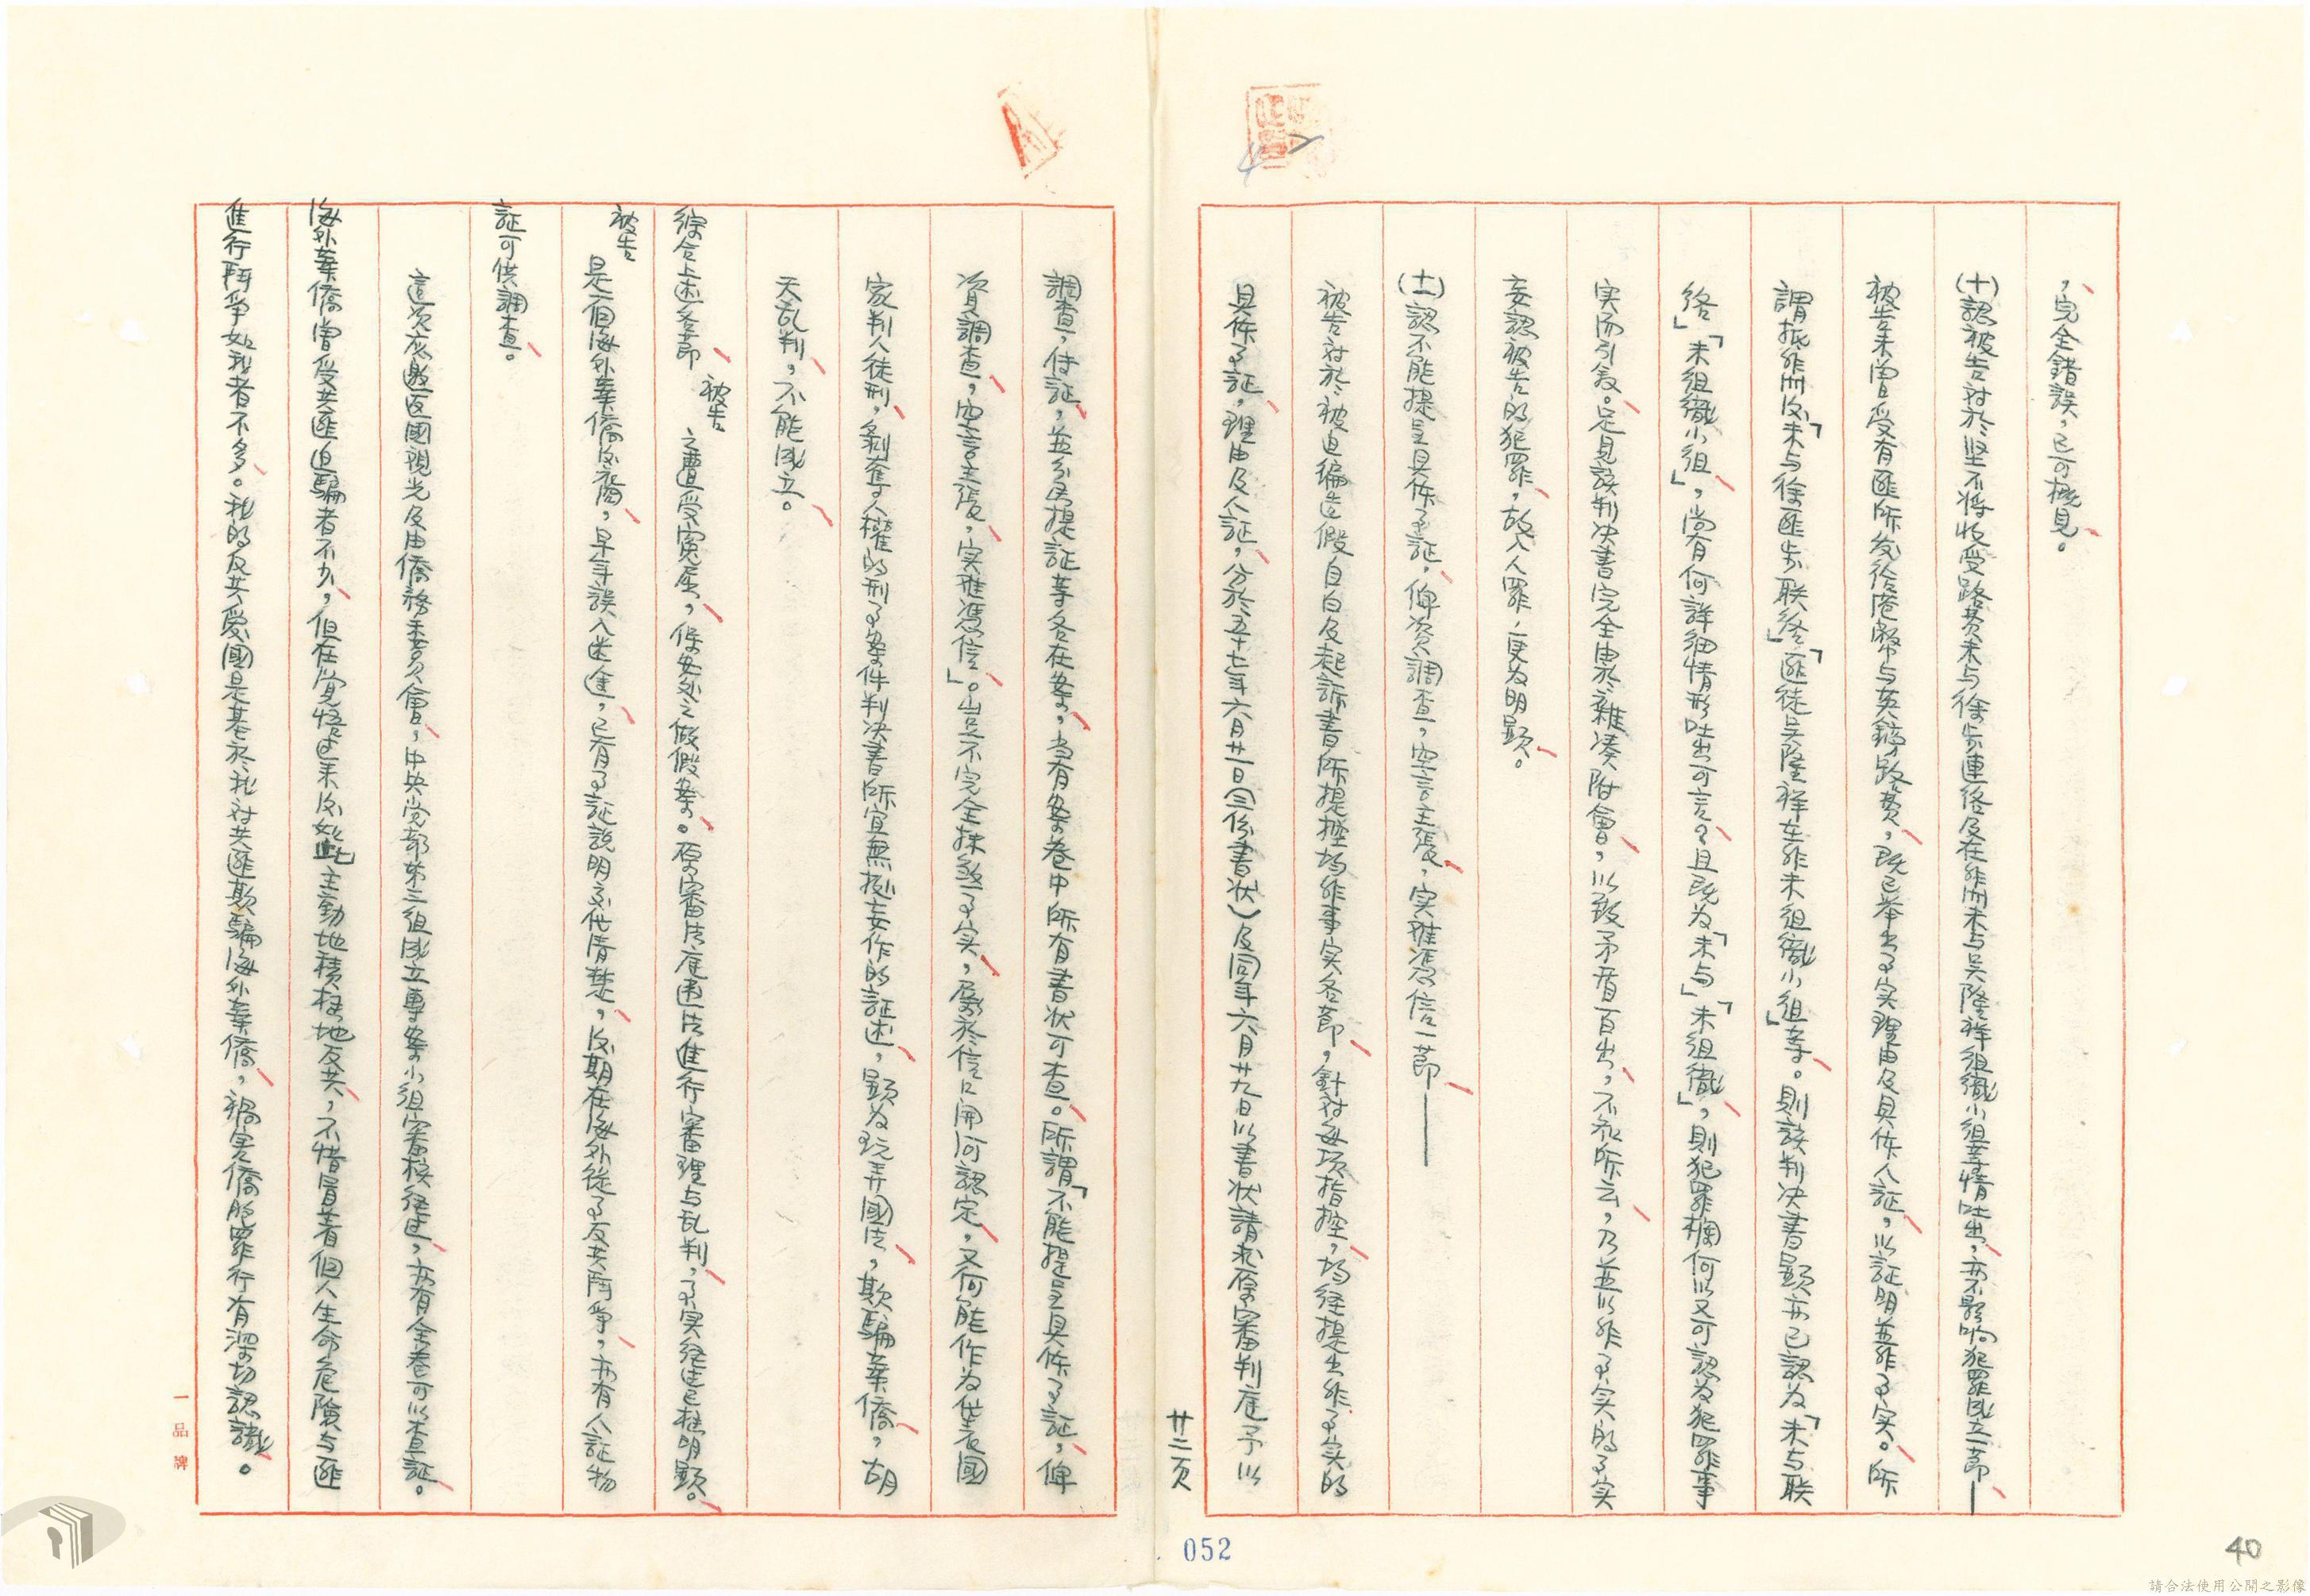 ，完全錯誤，已可概見。
(十)認被告对於坚不將收受路费未与徐步連络及在非洲未与吴隆祥組織小組等情吐出，亦不影响犯罪成立一節—
被告未曾受有匪所发给港幣与英鎊路费，既已举出了实理由及具体人証，以証明並非了实。所
謂抵非洲後「未与徐匪步联络」「匪徒吴隆祥在非未組織小組」等。則該判决書显亦已認为「未与联
络」「未組織小組」，尚有何詳细情形吐出可言？且既为「未与」「未組織」，則犯罪欄何以又可認为犯罪事
实而引敘。足見該判决書完全由於雜凑附會，以致矛盾百出，不知所云，乃並以非了实的了实
妄認被告的犯罪，故入人罪，更为明顕。
(十一)認不能提呈具体了証，俾资調查，空言主張，实难凭信一節——
被告对於被迫编造假自白及起訴書所提控均非事实各節，針对每项指控，均経提出非了实的
具体了証，理由及人証，分於五十七年六月廿一日(三份書状)及同年六月廿九日以書状請求原審判庭予以
廿二页
調查，侍証，並分馬提証等各在案，当有案卷中所有書状可查。所謂「不能提呈具体了証，俾
資調查，空言主張，实难憑信」。豈不完全抹煞了实，屬於信口開河認定，又何能作为代表國
家判人徒刑，剝奪人權的刑了案件判决書所宜無據妄作的証述，顕为玩弄國法，欺騙華僑，胡
天乱判，不能成立。
綜合上述各節，被告之遭受寃屈，保安处之做假案。原審法庭違法進行審理与乱判，了实経过已極明顕。
被告是一個海外華僑後裔，早年誤入迷途，已有了証説明交代清楚，後期在海外從了反共鬥爭，亦有人証物
証可供調查。
這次应邀返國覌光及由僑務委員會，中央党部第三組成立專案小組審核経过，亦有全卷可以查証。
海外華僑曾受共匪迫騙者不少，但在覚悟过来後如此主動地積極地反共，不惜冒着個人生命危險与匪
進行鬥爭如我者不多。我的反共爱國是基於我对共匪欺騙海外華僑，禍害僑胞罪行有深切認識。
一品牌
052
40
請合法使用公開之影像